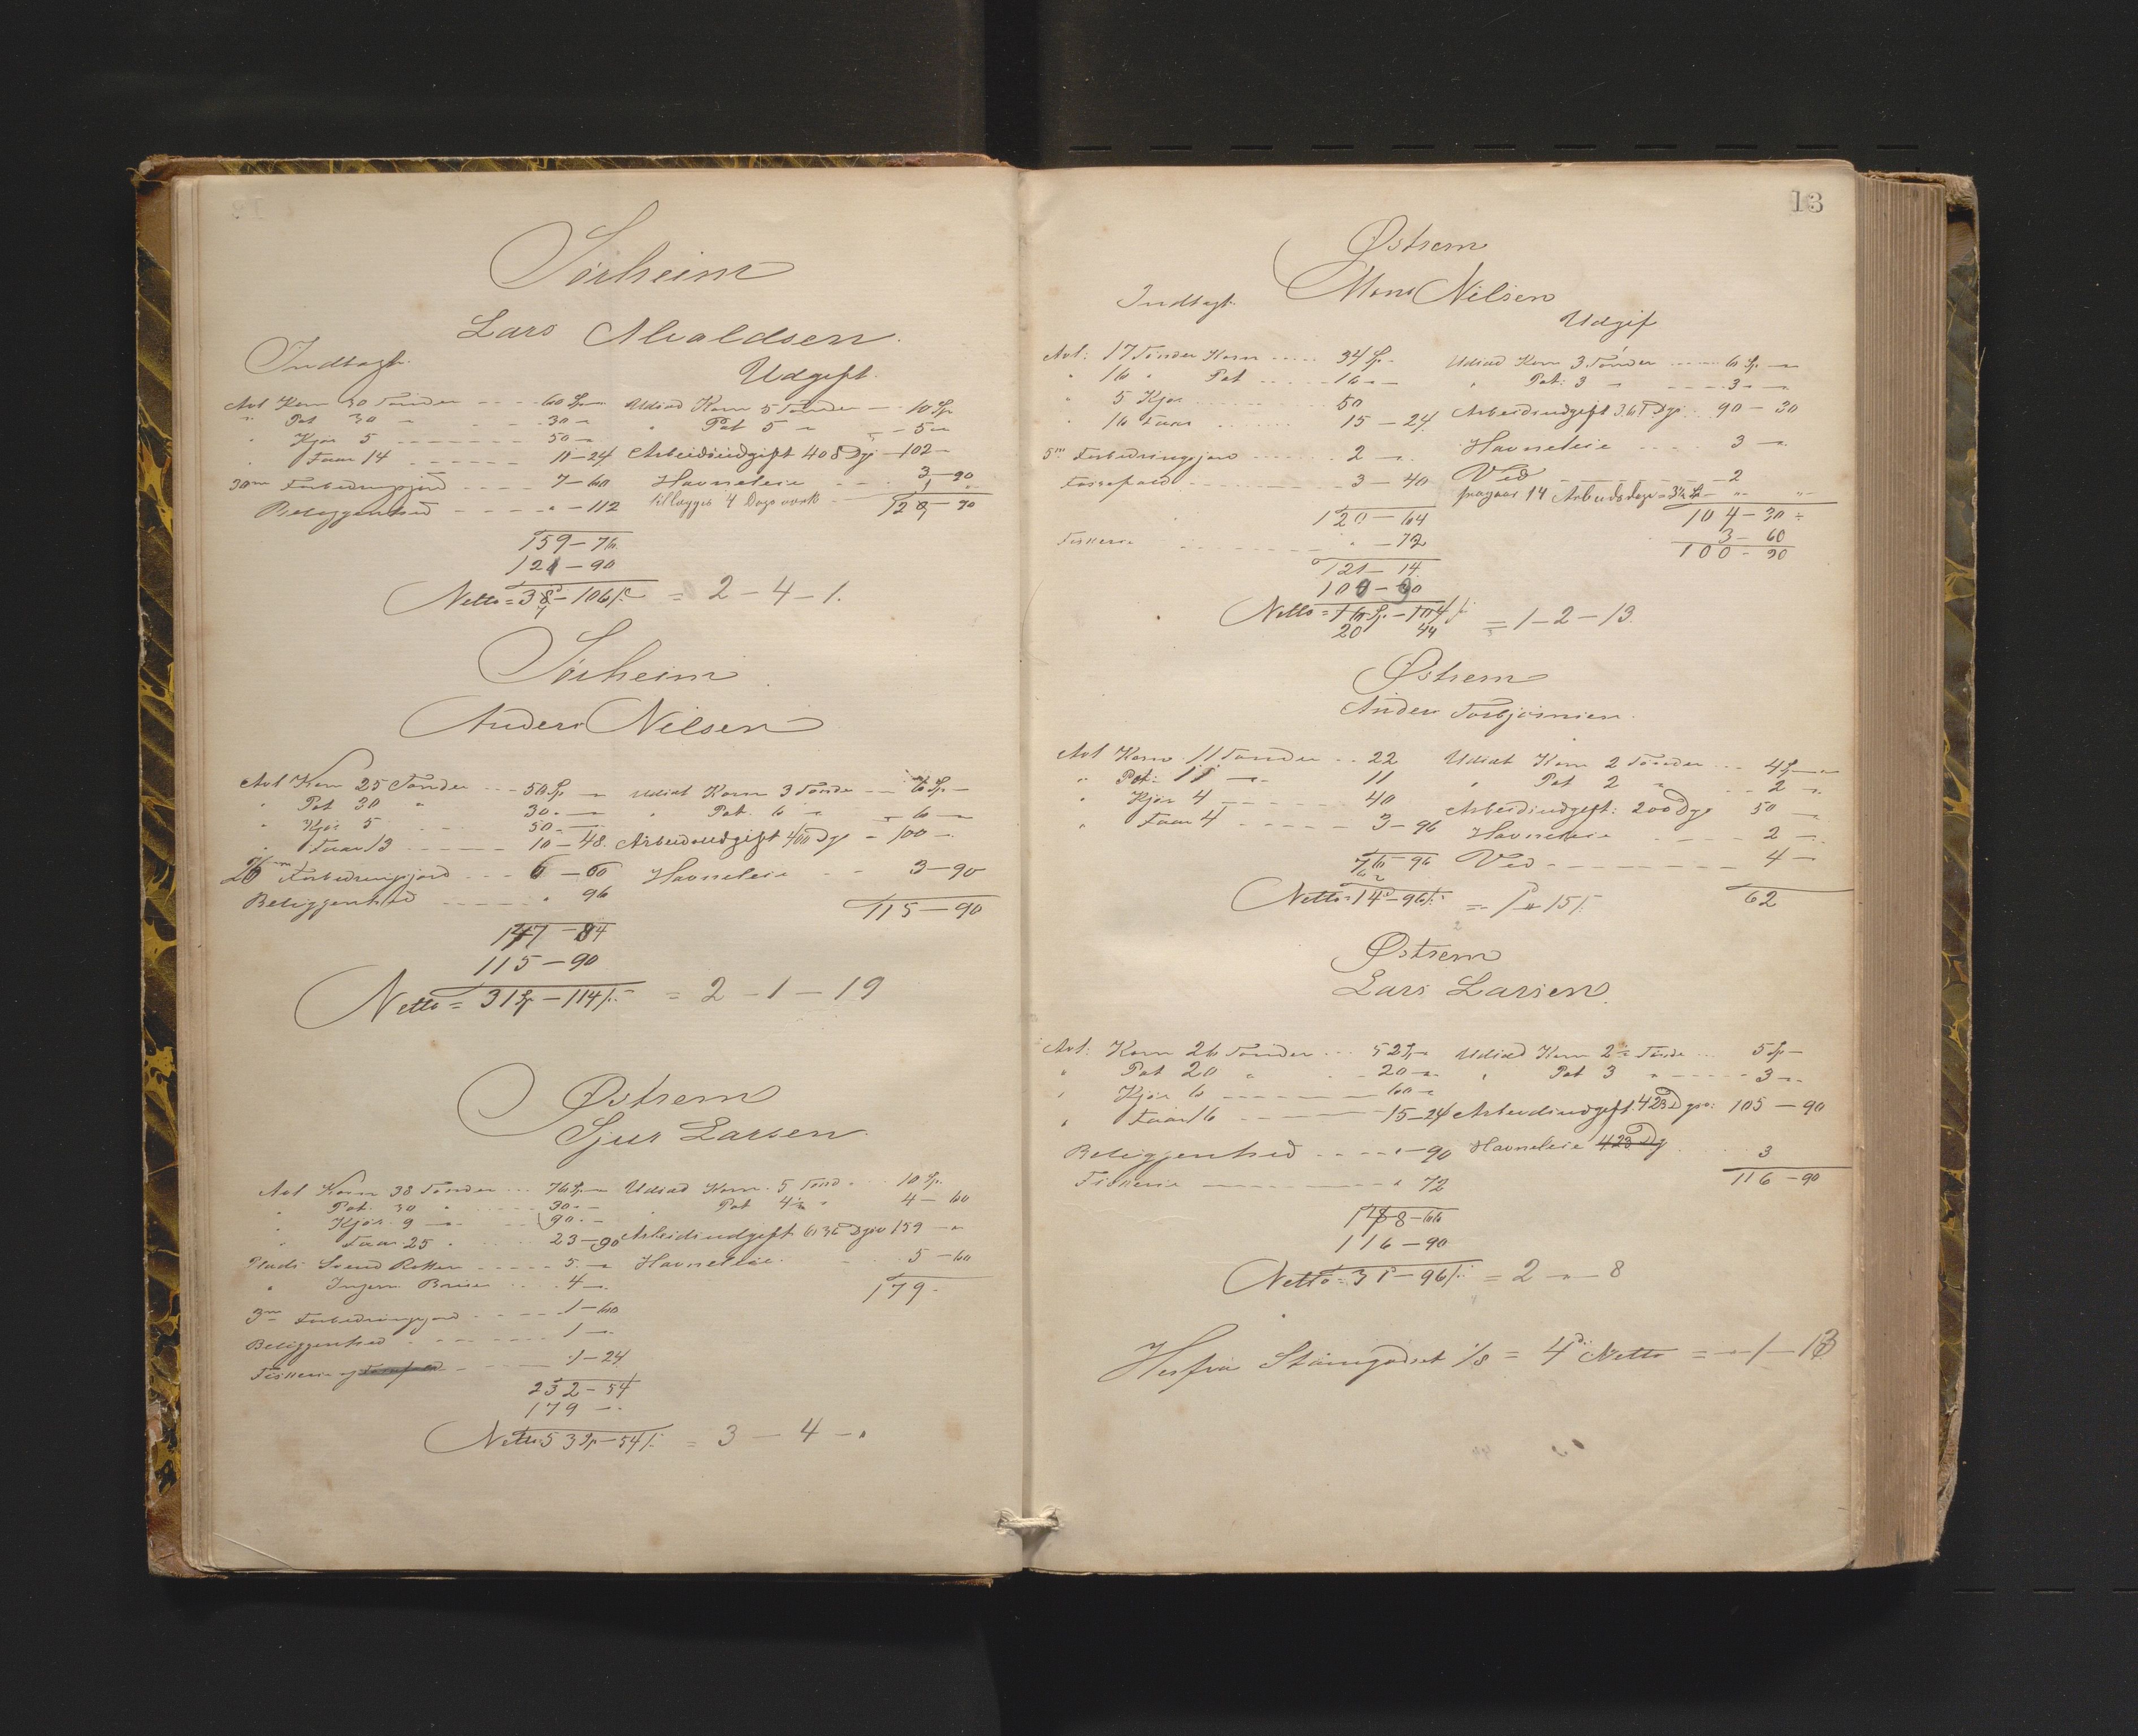 Sörheim
Lars Alvaldsen.
Indtægt. Udgift.
Avl Korn 30 Tønder - - - 60 Sp - Udsæd Korn 5 Tønder - - 10 Sp
" Pot 30 " - - 30 - " Pot 5 " - - 5 -
" Kjør 5 - - - - - 50 -
" Faar 14 - - - - 11 - 24 Arbeidsudgift 408 Dg - 102 -
30 m Forbedringsjord - - - 7 - 60 Havneleie - - - 3 - 90
Beliggenhed - - - - " - 112 tillægges 4 Dags
128 - 90
159 - 76
121 - 90
Netto = 38 - 106 = 2 - 4 - 1.
Sörheim
Anders Nilsen
Avl Korn 25 Tønder - - - 50 Sp - Udsæd Korn 3 Tønder - - 6 Sp -
" Pot 30 " 30 - - " Pot. 6 - - 6 -
" Kjør 5 - - 50 - -
" Faar 13 - - - - 10 - 48. Arbeidsudgift 400 Dg - 100 -
26 m Forbedringsjord - - - 6 - 60 Havneleie - - 3 - 90
Beliggenhed - - - - " 96
115 - 90
147 - 84
115 - 90
Netto = 31 Sp - 114 = 2 - 1 - 19
Østrem
Sjur Larsen.
Avl Korn 38 Tønder - - - 76 Sp - Udsæd Korn 5 Tønd - - 10 Sp.
" Pot. 30 " - - 30 - - " Pot 4½ " 4 - 60
" Kjør. 9 - - - 90 - -
" Faar. 25 - - 23 - 90 Arbeidsudgift 636 Dg 159 - "
Plads Svend - - - - 5 - " Havneleie. - 5 - 60
" - - - 4 - .
179 -
3 m Forbedringsjord - - - 1 - 60
Beliggenhed - - - - - 1 - .
Fiskerie og - - - 1 - 24
232 - 54
179 - .
Netto 53 Sp - 54 = 3 - 4 - .
13
Østrem
Mons Nilsen
Indtægt. Udgif
Avl: 17 Tønder Korn - - - 34 Sp - Udsæd Korn 3 Tønder - - - 6 Sp. -
" 16 " Pot - - - 16 - - " Pot: 3 - - - - 3 - -
" 5 Kjør - - - 50
" 16 Faar - - - 15 - 24 Arbeidsudgift 361 Dge. 90 - 30
5 m Forbedringsjord - - - - 2 - . Havneleie - - - 3 -
- - - - - 3 - 40 Ved - - - - - 2
fragaar 14 Arbeidsdage = 3½ Sp - " - "
120 - 64 104 - 30 ÷
3 - 60
Fiskerie - - - - - " - 72 100 - 90
121 - 14
100 - 90
Netto = 16 Sp - 104
20 44 = 1 - 2 - 13.
Østrem
Anders Torbjörnsen.
Avl Korn 11 Tønder - - 22 Udsæt Korn 2 Tønder - - 4 Sp -
" Pot: 11 - - 11 " Pot 2 " - - 2 -
" Kjør 4 - - - 40 Arbeidsudgift: 200 Dg 50 -
" Faar 4 - - - - 3 - 96 Havneleie - - - 2 -
76 - 96 Ved - - - - - - - 4 -
62
Netto = 14 - 96 = 1 " 15 62
Østrem
Lars Larsen.
Avl: Korn 26 Tønder - - - 52 Sp - Udsæd Korn 2½ Tønde - - 5 Sp -
" Pot 20 " - - 20 - . " Pot 3 " - - - 3 - .
" Kjør 6 - - - - 60 -
" Faar 16 - - - - 15 - 24 Arbeidsudgift. 423 D 105 - 90
Beliggenhed - - - " - 90 Havneleie 423 Dg - - 3
Fiskerie - - - - - - " 72 116 - 90
148 - 66
116 - 90
Netto = 31 - 96 = 2 - " - 8
Herfra 1/8 = 4 Netto = - " - 1 - 13